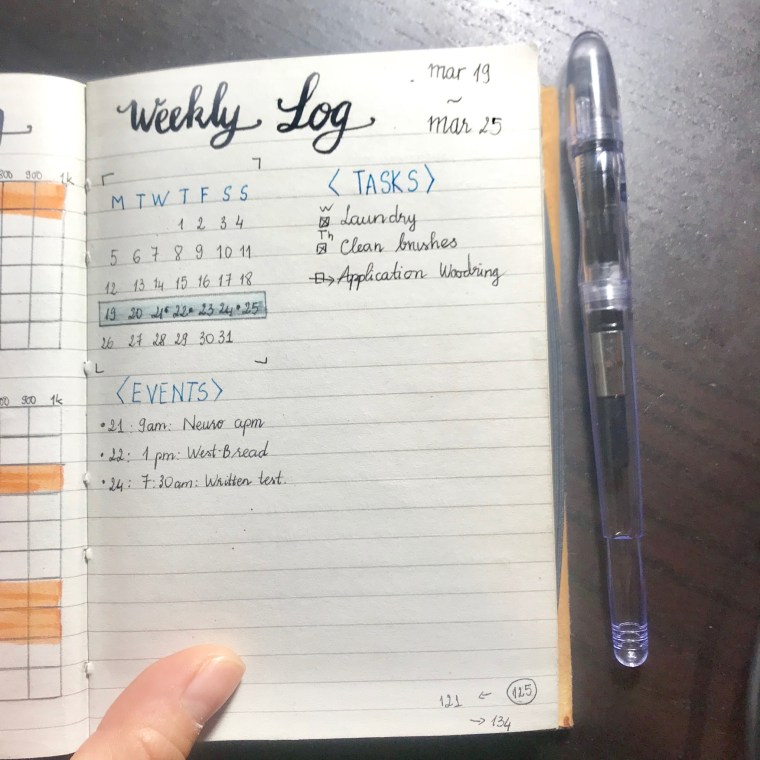 Weekly Log
mar 19
~
mar 25
M T W T F S S
1 2 3 4
5 6 7 8 9 10 11
12 13 14 15 16 17 18
19 20 21• 22• 23 24• 25
26 27 28 29 30 31
<EVENTS>
• 21: 9am: Neuro apm
• 22: 1 pm: West-Bread
• 24: 7:30am: Written test.
<TASKS>
W
☒ Laundry
Th
☒ Clean brushes
☐→ Application Woodring
121 ← 125
→ 134
800 900 1k
900 1k